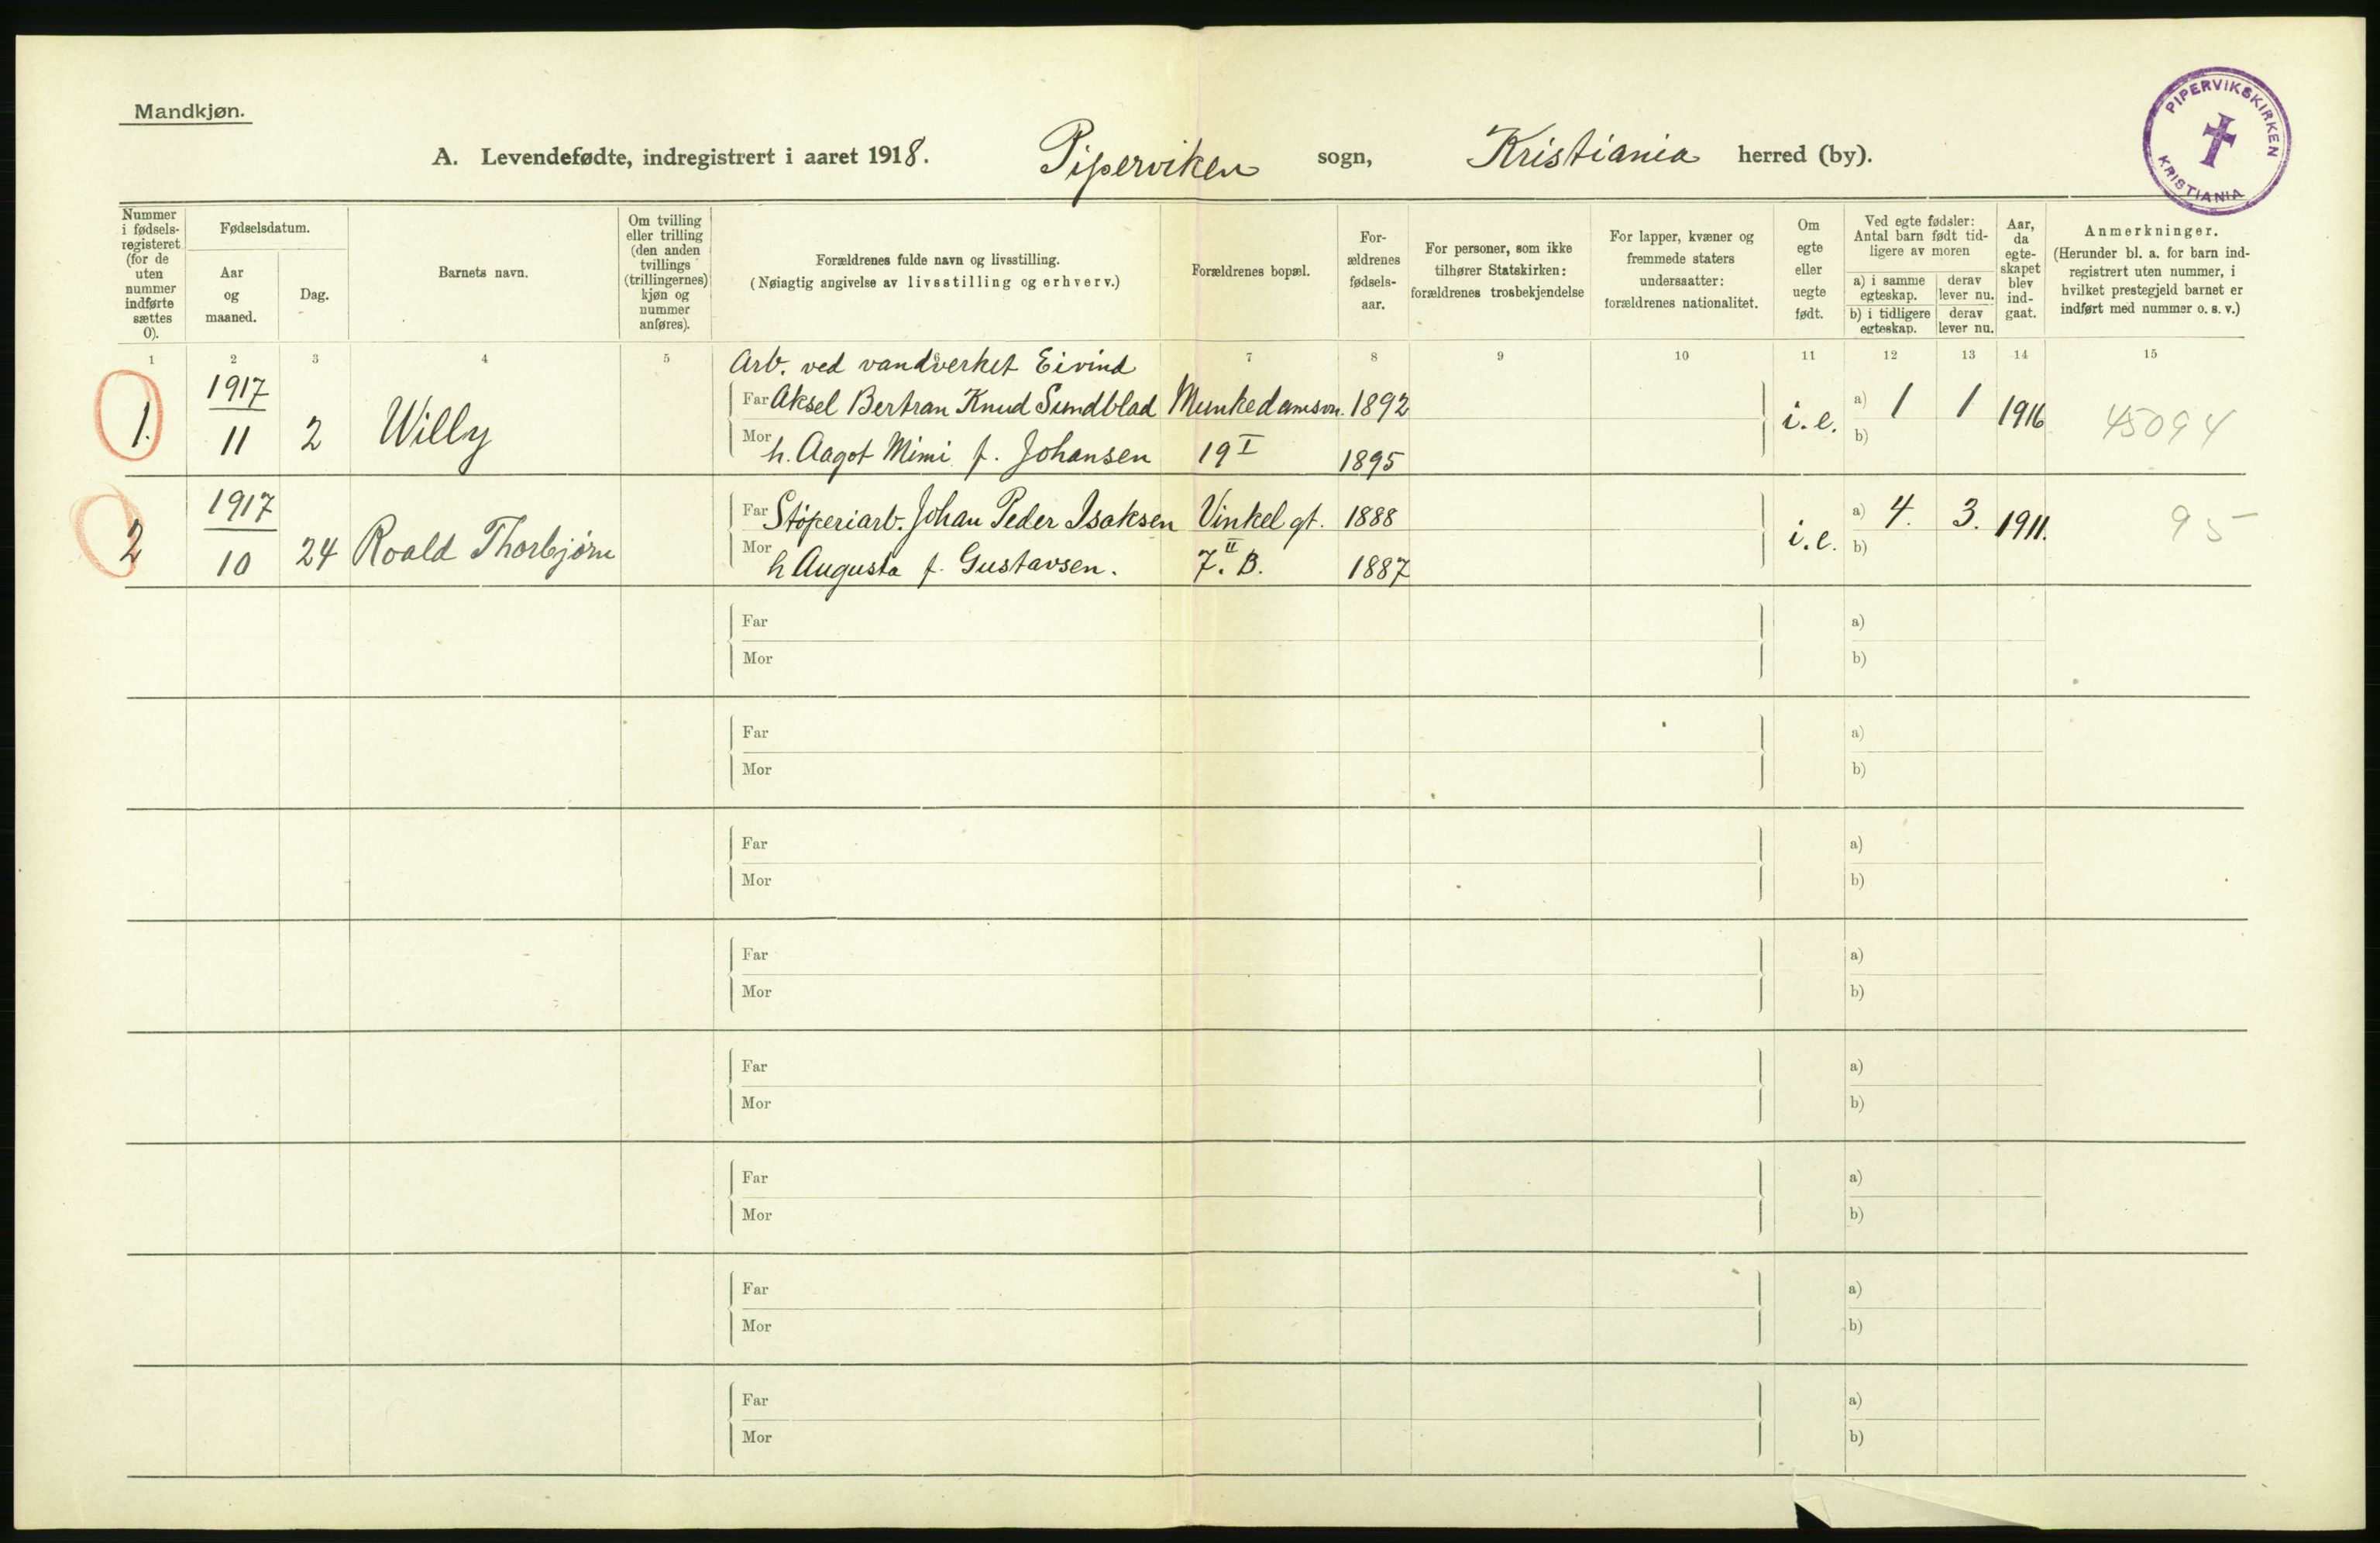 Mandkjøn.
A. Levendefødte, indregistrert i aaret 1918. Piperviken sogn, Kristiania herred (by).
PIPERVIKSKIRKEN
KRISTIANIA
Nummer i fødsels-registeret (for de uten nummer indførte sættes 0).
Fødselsdatum.
Aar og maaned.
Dag.
Barnets navn.
Om tvilling eller trilling (den anden tvillings (trillingernes) kjøn og nummer anføres).
Forældrenes fulde navn og livsstilling.
(Nøiagtig angivelse av livsstilling og erhverv.)
Forældrenes bopæl.
For-ældrenes fødsels-aar.
For personer, som ikke tilhører Statskirken: forældrenes trosbekjendelse
For lapper, kvæner og fremmede staters undersaatter: forældrenes nationalitet.
Om egte eller uegte født.
Ved egte fødsler: Antal barn født tid-ligere av moren
a) i samme egteskap.
derav lever nu.
b) i tidligere egteskap.
derav lever nu.
Aar, da egte-skapet blev ind-gaat.
Anmerkninger.
(Herunder bl. a. for barn ind-registrert uten nummer, i hvilket prestegjeld barnet er indført med nummer o. s. v.)
1 2 3 4 5 6 7 8 9 10 11 12 13 14 15
Arb. ved vandverket Eivind
1. 1917 11 2 Willy
Far Aksel Bertran Knud Sundblad Munkedamsvn. 1892 i.e. a) 1 1 1916 45094
Mor h. Aagot Mimi f. Johansen 19 I 1895 b)
2 1917 10 24 Roald Thorbjørn
Far Støperiarb. Johan Peder Isaksen Vinkel gt. 1888 i.e. a) 4. 3. 1911. 95
Mor h Augusta f. Gustavsen. 7. II B. 1887 b)
Far a)
Mor b)
Far a)
Mor b)
Far a)
Mor b)
Far a)
Mor b)
Far a)
Mor b)
Far a)
Mor b)
Far a)
Mor b)
Far a)
Mor b)